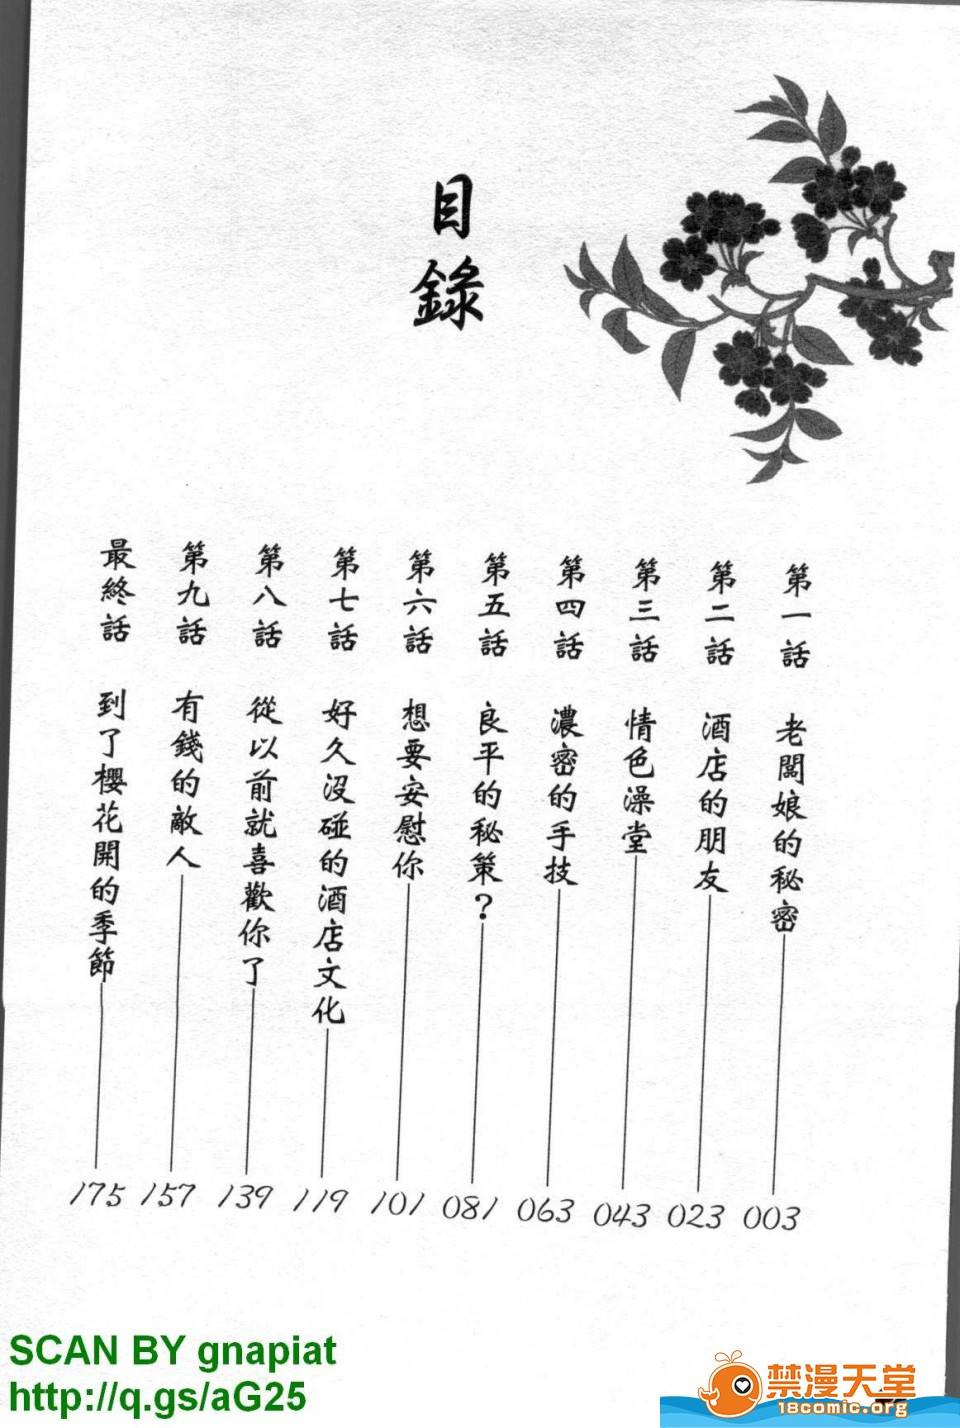 目錄
第一話 老闆娘的秘密 003
第二話 酒店的朋友 023
第三話 情色澡堂 043
第四話 濃密的手技 063
第五話 良平的秘策? 081
第六話 想要安慰你 101
第七話 好久沒碰的酒店文化 119
第八話 從以前就喜歡你了 139
第九話 有錢的敵人 157
最終話 到了櫻花開的季節 175
SCAN BY gnapiat
http://q.gs/aG25
禁漫天堂
18comic.org